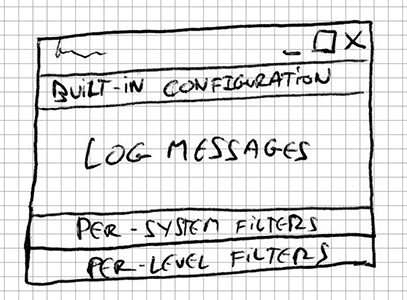 BUILT-IN CONFIGURATION
LOG MESSAGES
PER-SYSTEM FILTERS
PER-LEVEL FILTERS